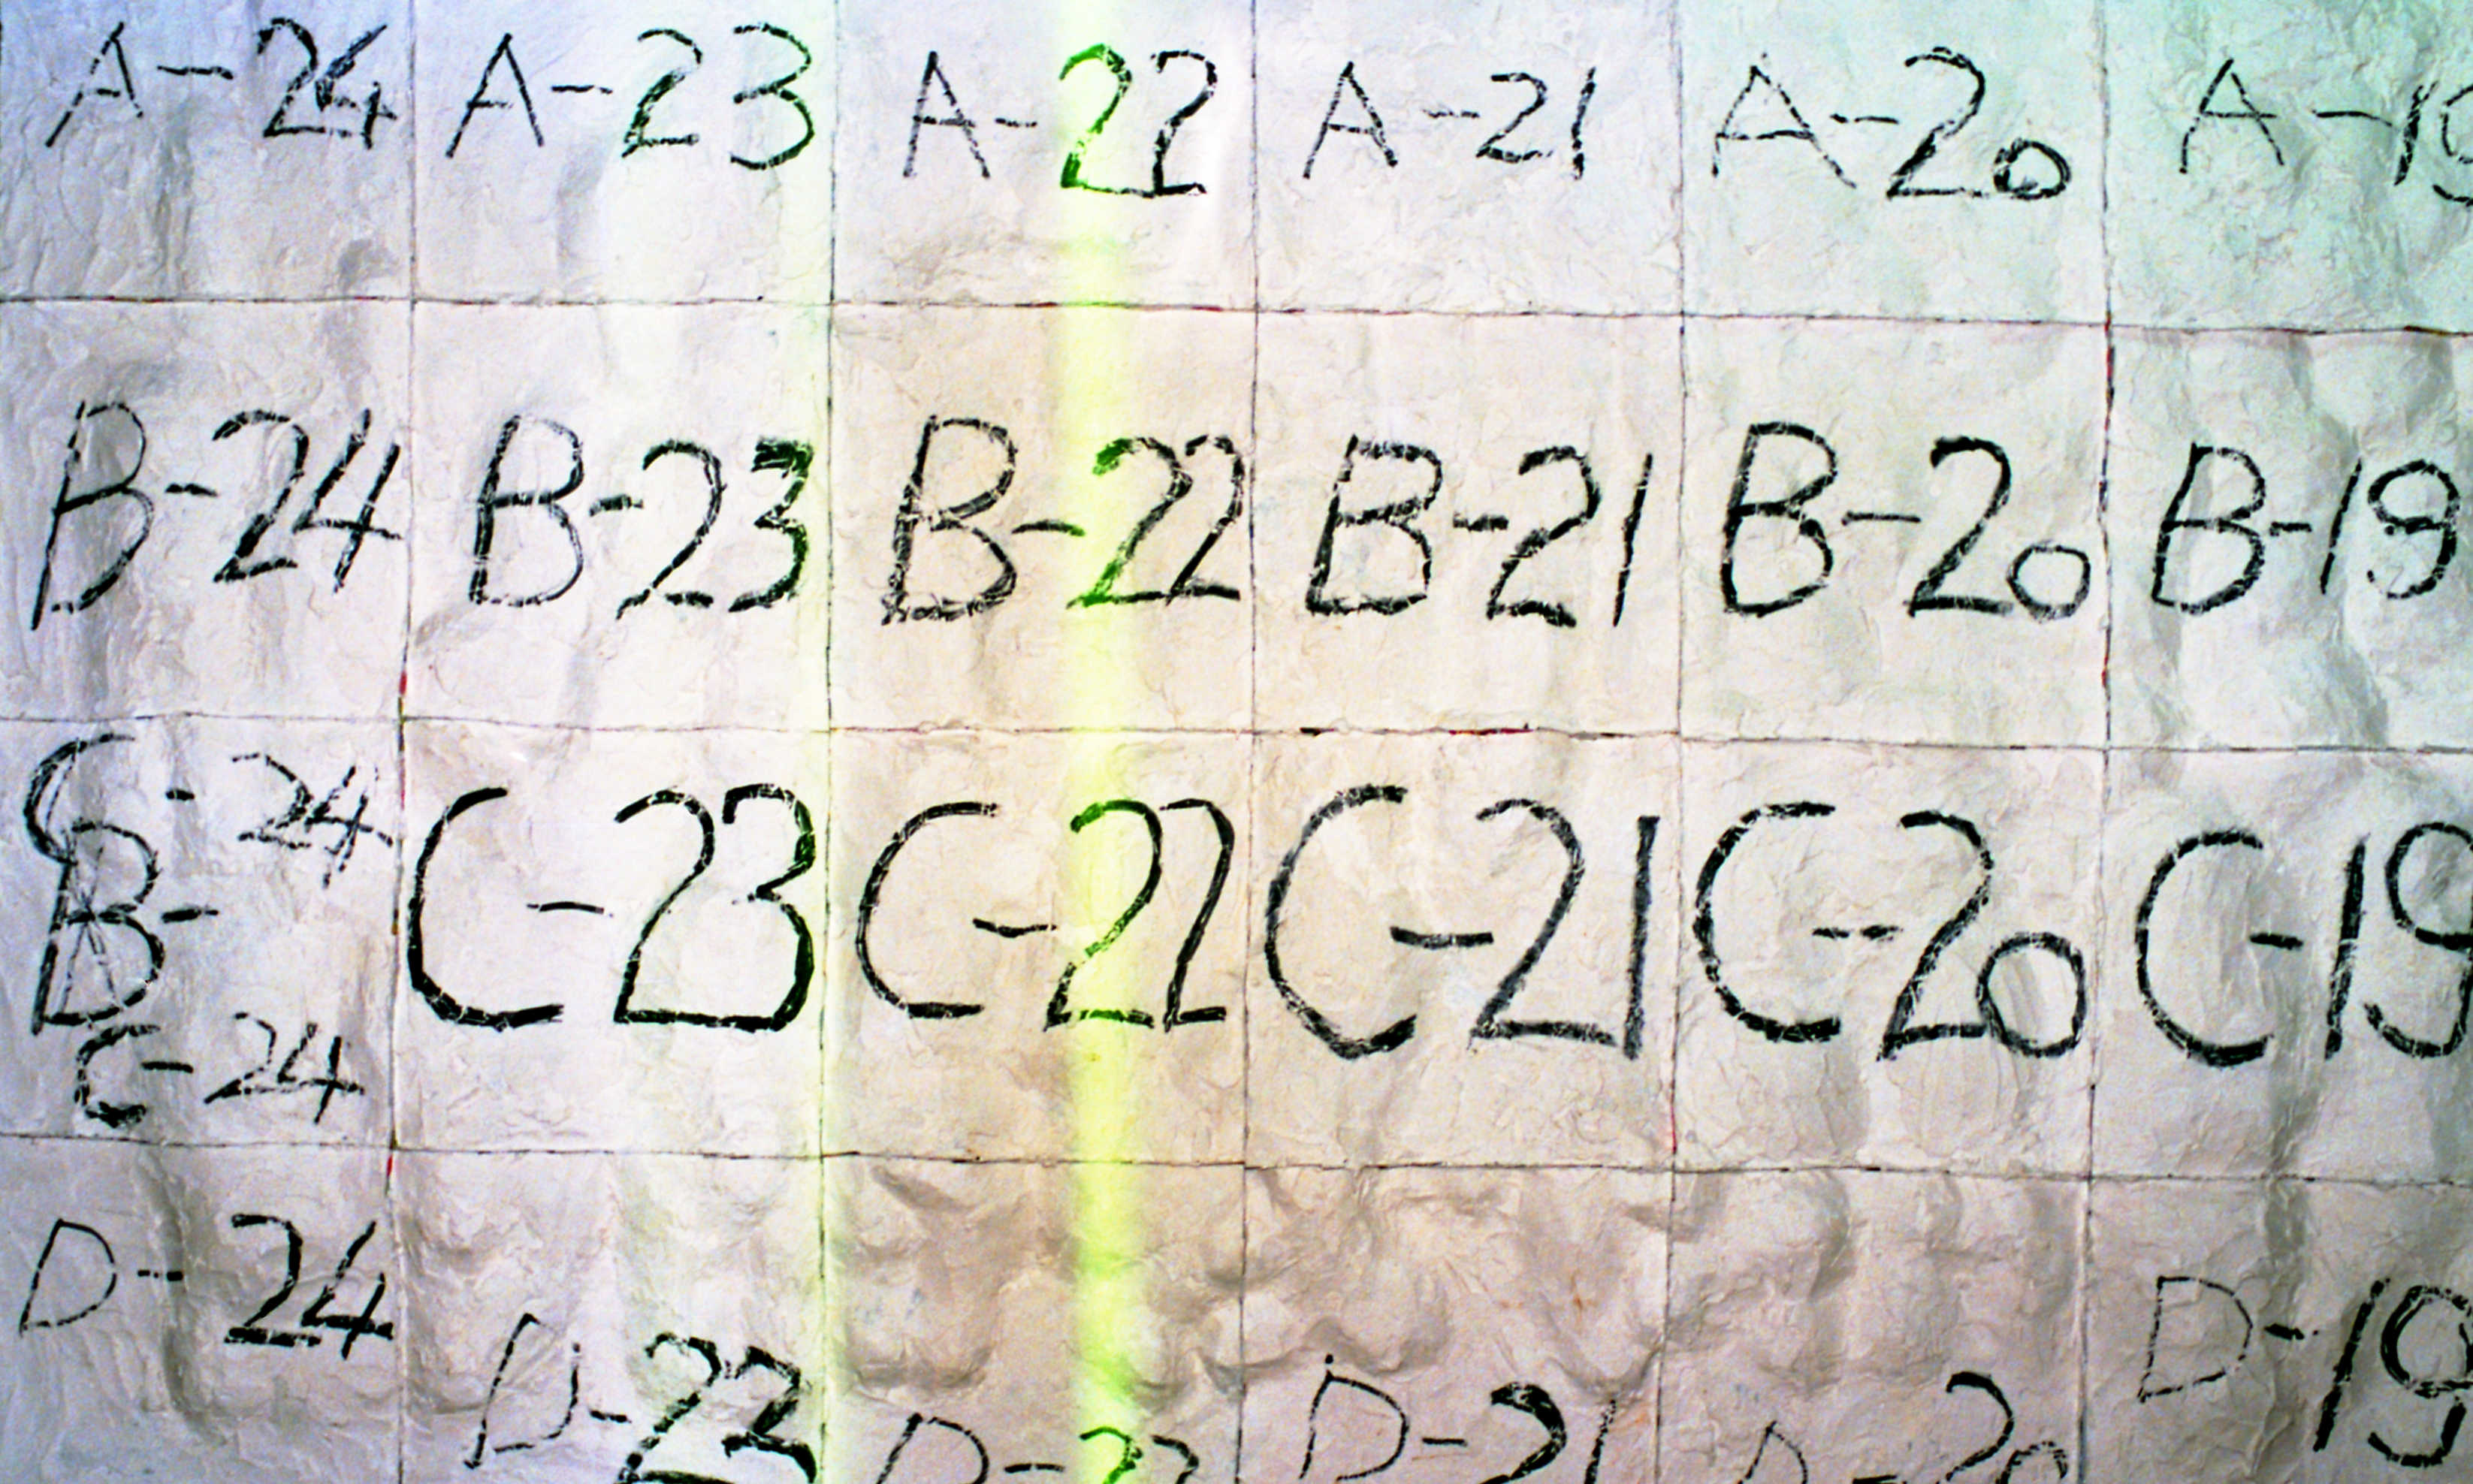 A-24 A-23 A-22 A-21 A-20 A-19
B-24 B-23 B-22 B-21 B-20 B-19
C-24
B-
C-24
C-23 C-22 C-21 C-20 C-19
D-24 D-23 D-22 D-21 D-20 D-19